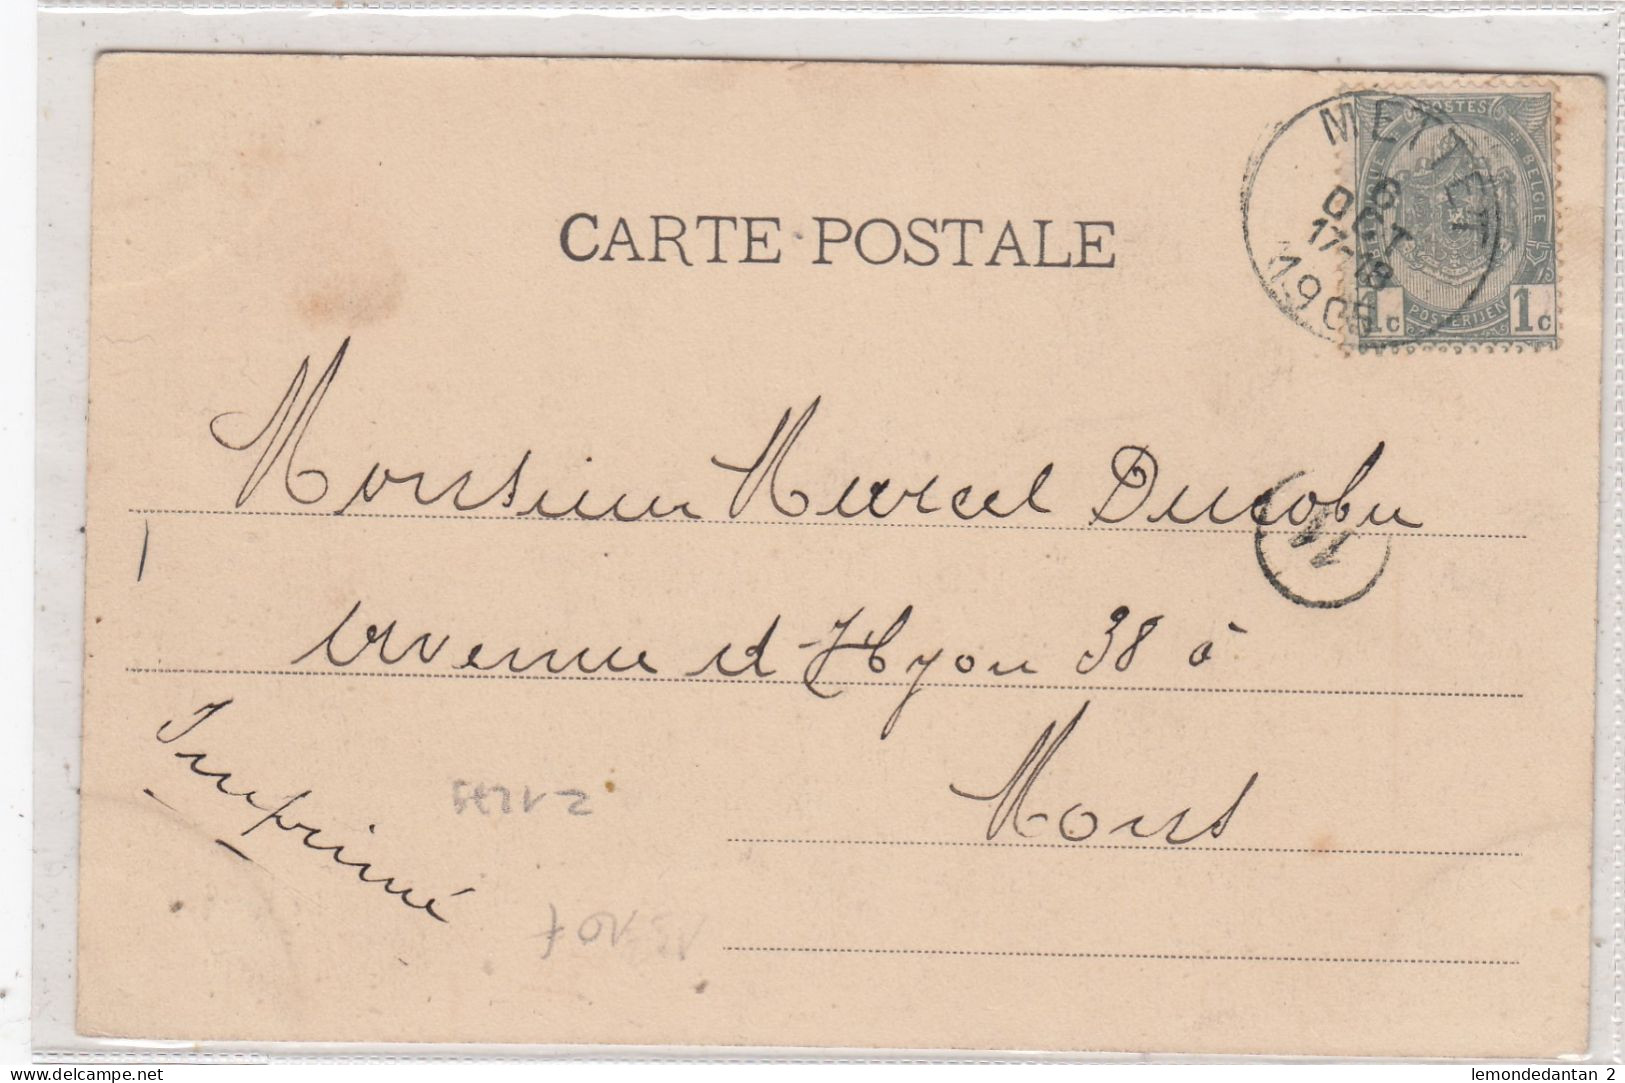 CARTE POSTALE
METTET
6
OCT
17-18
1905
POSTES
BELGIE
POSTERIJEN
1c 1c
Monsieur Marcel Ducobu
11
Avenue d'Hyon 38 à
Mons
Imprimé
www.delcampe.net
lemondedantan 2